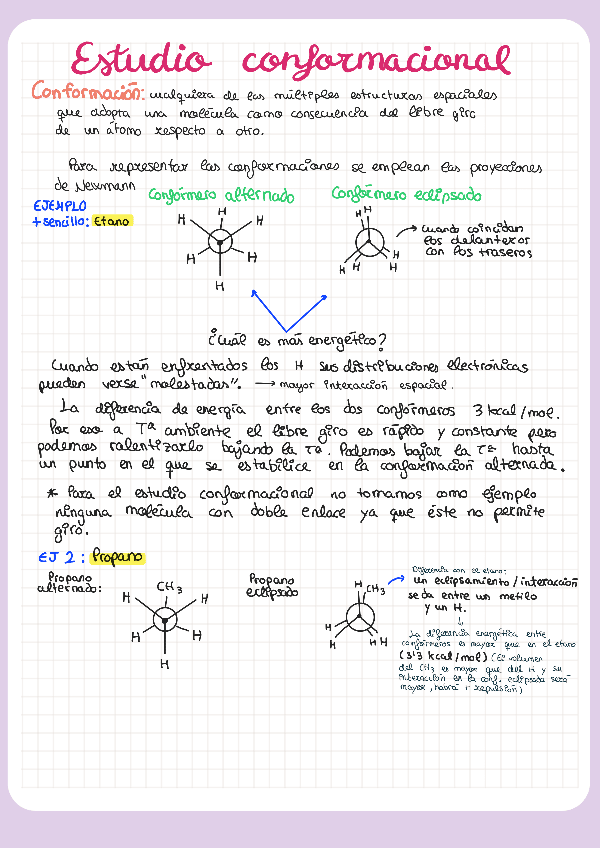 Estudio conformacional
Conformación: cualquiera de las múltiples estructuras espaciales
que adopta una molécula como consecuencia del libre giro
de un átomo respecto a otro.
Para representar las conformaciones se emplean las proyecciones
de Newmann
Confórmero alternado
Confórmero eclipsado
EJEMPLO
+ sencillo: Etano
H
H
H
H
H
H
H H
H
H
H
H
→ cuando coinciden
los delanteros
con los traseros
¿Cuál es más energético?
Cuando están enfrentados los H sus distribuciones electrónicas
pueden verse "molestadas". → mayor interacción espacial.
La diferencia de energía entre los dos confórmeros 3 kcal/mol.
Por eso a Tª ambiente el libre giro es rápido y constante pero
podemos ralentizarlo bajando la Tª. Podemos bajar la Tª hasta
un punto en el que se estabilice en la conformación alternada.
* Para el estudio conformacional no tomamos como ejemplo
ninguna molécula con doble enlace ya que éste no permite
giro.
EJ 2: Propano
Propano
alternado:
CH3
H
H
H
H
H
Propano
eclipsado
H
CH3
H
H
H H
Diferencia con el etano:
un eclipsamiento/interacción
se da entre un metilo
y un H.
↓
La diferencia energética entre
confórmeros es mayor que en el etano
(3'3 kcal/mol) (El volumen
del CH3 es mayor que del H y su
interacción en la conf. eclipsada será
mayor, habrá repulsión)